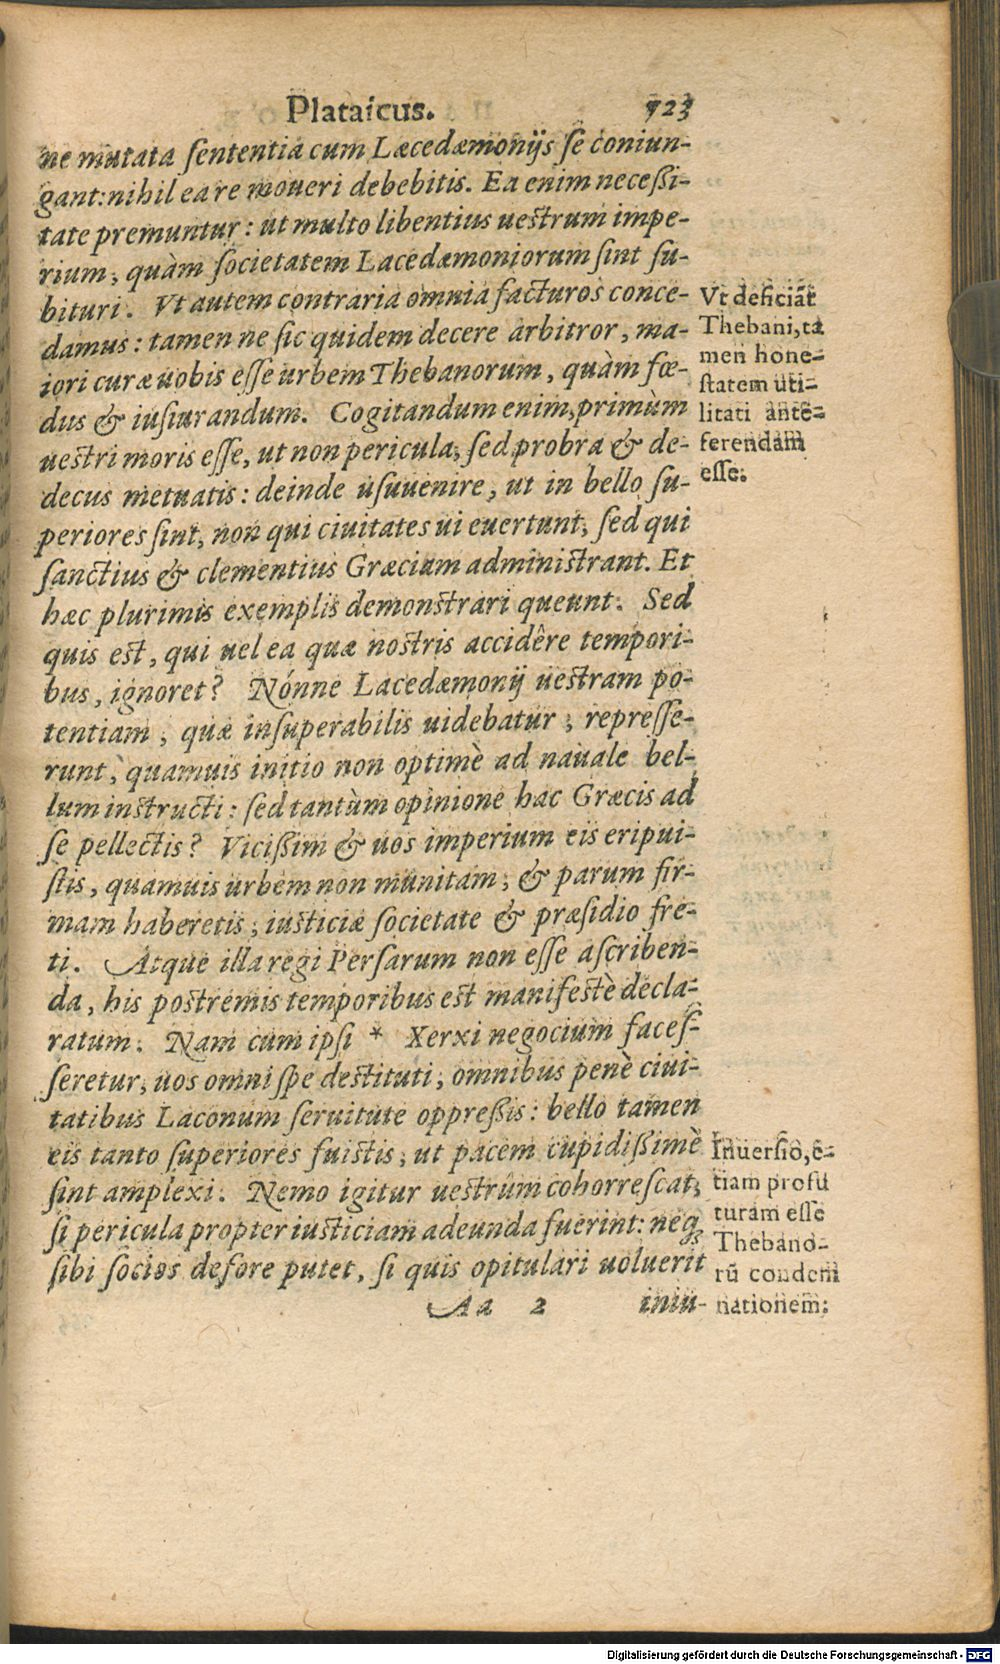 Plataicus. 723
ne mutata ſententia cum Lacedæmonijs ſe coniun-
gant: nihil ea re moueri debebitis. Ea enim neceßi-
tate premuntur: ut multo libentius ueſtrum impe-
rium, quàm ſocietatem Lacedæmoniorum ſint ſu-
bituri. Vt autem contraria omnia facturos conce-
damus: tamen ne ſic quidem decere arbitror, ma-
iori curæ uobis eſſe urbem Thebanorum, quàm fœ-
dus & iuſiurandum. Cogitandum enim, primùm
ueſtri moris eſſe, ut non pericula, ſed probra & de-
decus metuatis: deinde uſuuenire, ut in bello ſu-
periores ſint, non qui ciuitates ui euertunt, ſed qui
ſanctius & clementius Græciam adminiſtrant. Et
hæc plurimis exemplis demonſtrari queunt. Sed
quis eſt, qui uel ea quæ noſtris accidêre tempori-
bus, ignoret? Nónne Lacedæmonij ueſtram po-
tentiam, quæ inſuperabilis uidebatur, repreſſe-
runt, quamuis initio non optimè ad nauale bel-
lum inſtructi: ſed tantùm opinione hac Græcis ad
ſe pellectis? Vicißim & uos imperium eis eripui-
ſtis, quamuis urbem non munitam, & parum fir-
mam haberetis, iuſticiæ ſocietate & præſidio fre-
ti. Atque illa regi Perſarum non eſſe aſcriben-
da, his poſtremis temporibus eſt manifeſtè decla-
ratum. Nam cum ipſi * Xerxi negocium faceſ-
ſeretur, uos omni ſpe deſtituti, omnibus penè ciui-
tatibus Laconum ſeruitute oppreßis: bello tamen
eis tanto ſuperiores fuiſtis, ut pacem cupidißimè
ſint amplexi. Nemo igitur ueſtrûm cohorreſcat,
ſi pericula propter iuſticiam adeunda fuerint: neqꝫ
ſibi ſocios defore putet, ſi quis opitulari uoluerit
Aa 2 iniu-
Vt deficiāt
Thebani, ta
men hone-
ſtatem uti-
litati ante-
ferendam
eſſe.
Inuerſio, e-
tiam profu
turam eſſe
Thebano-
rū condem
nationem.
Digitalisierung gefördert durch die Deutsche Forschungsgemeinschaft - DFG